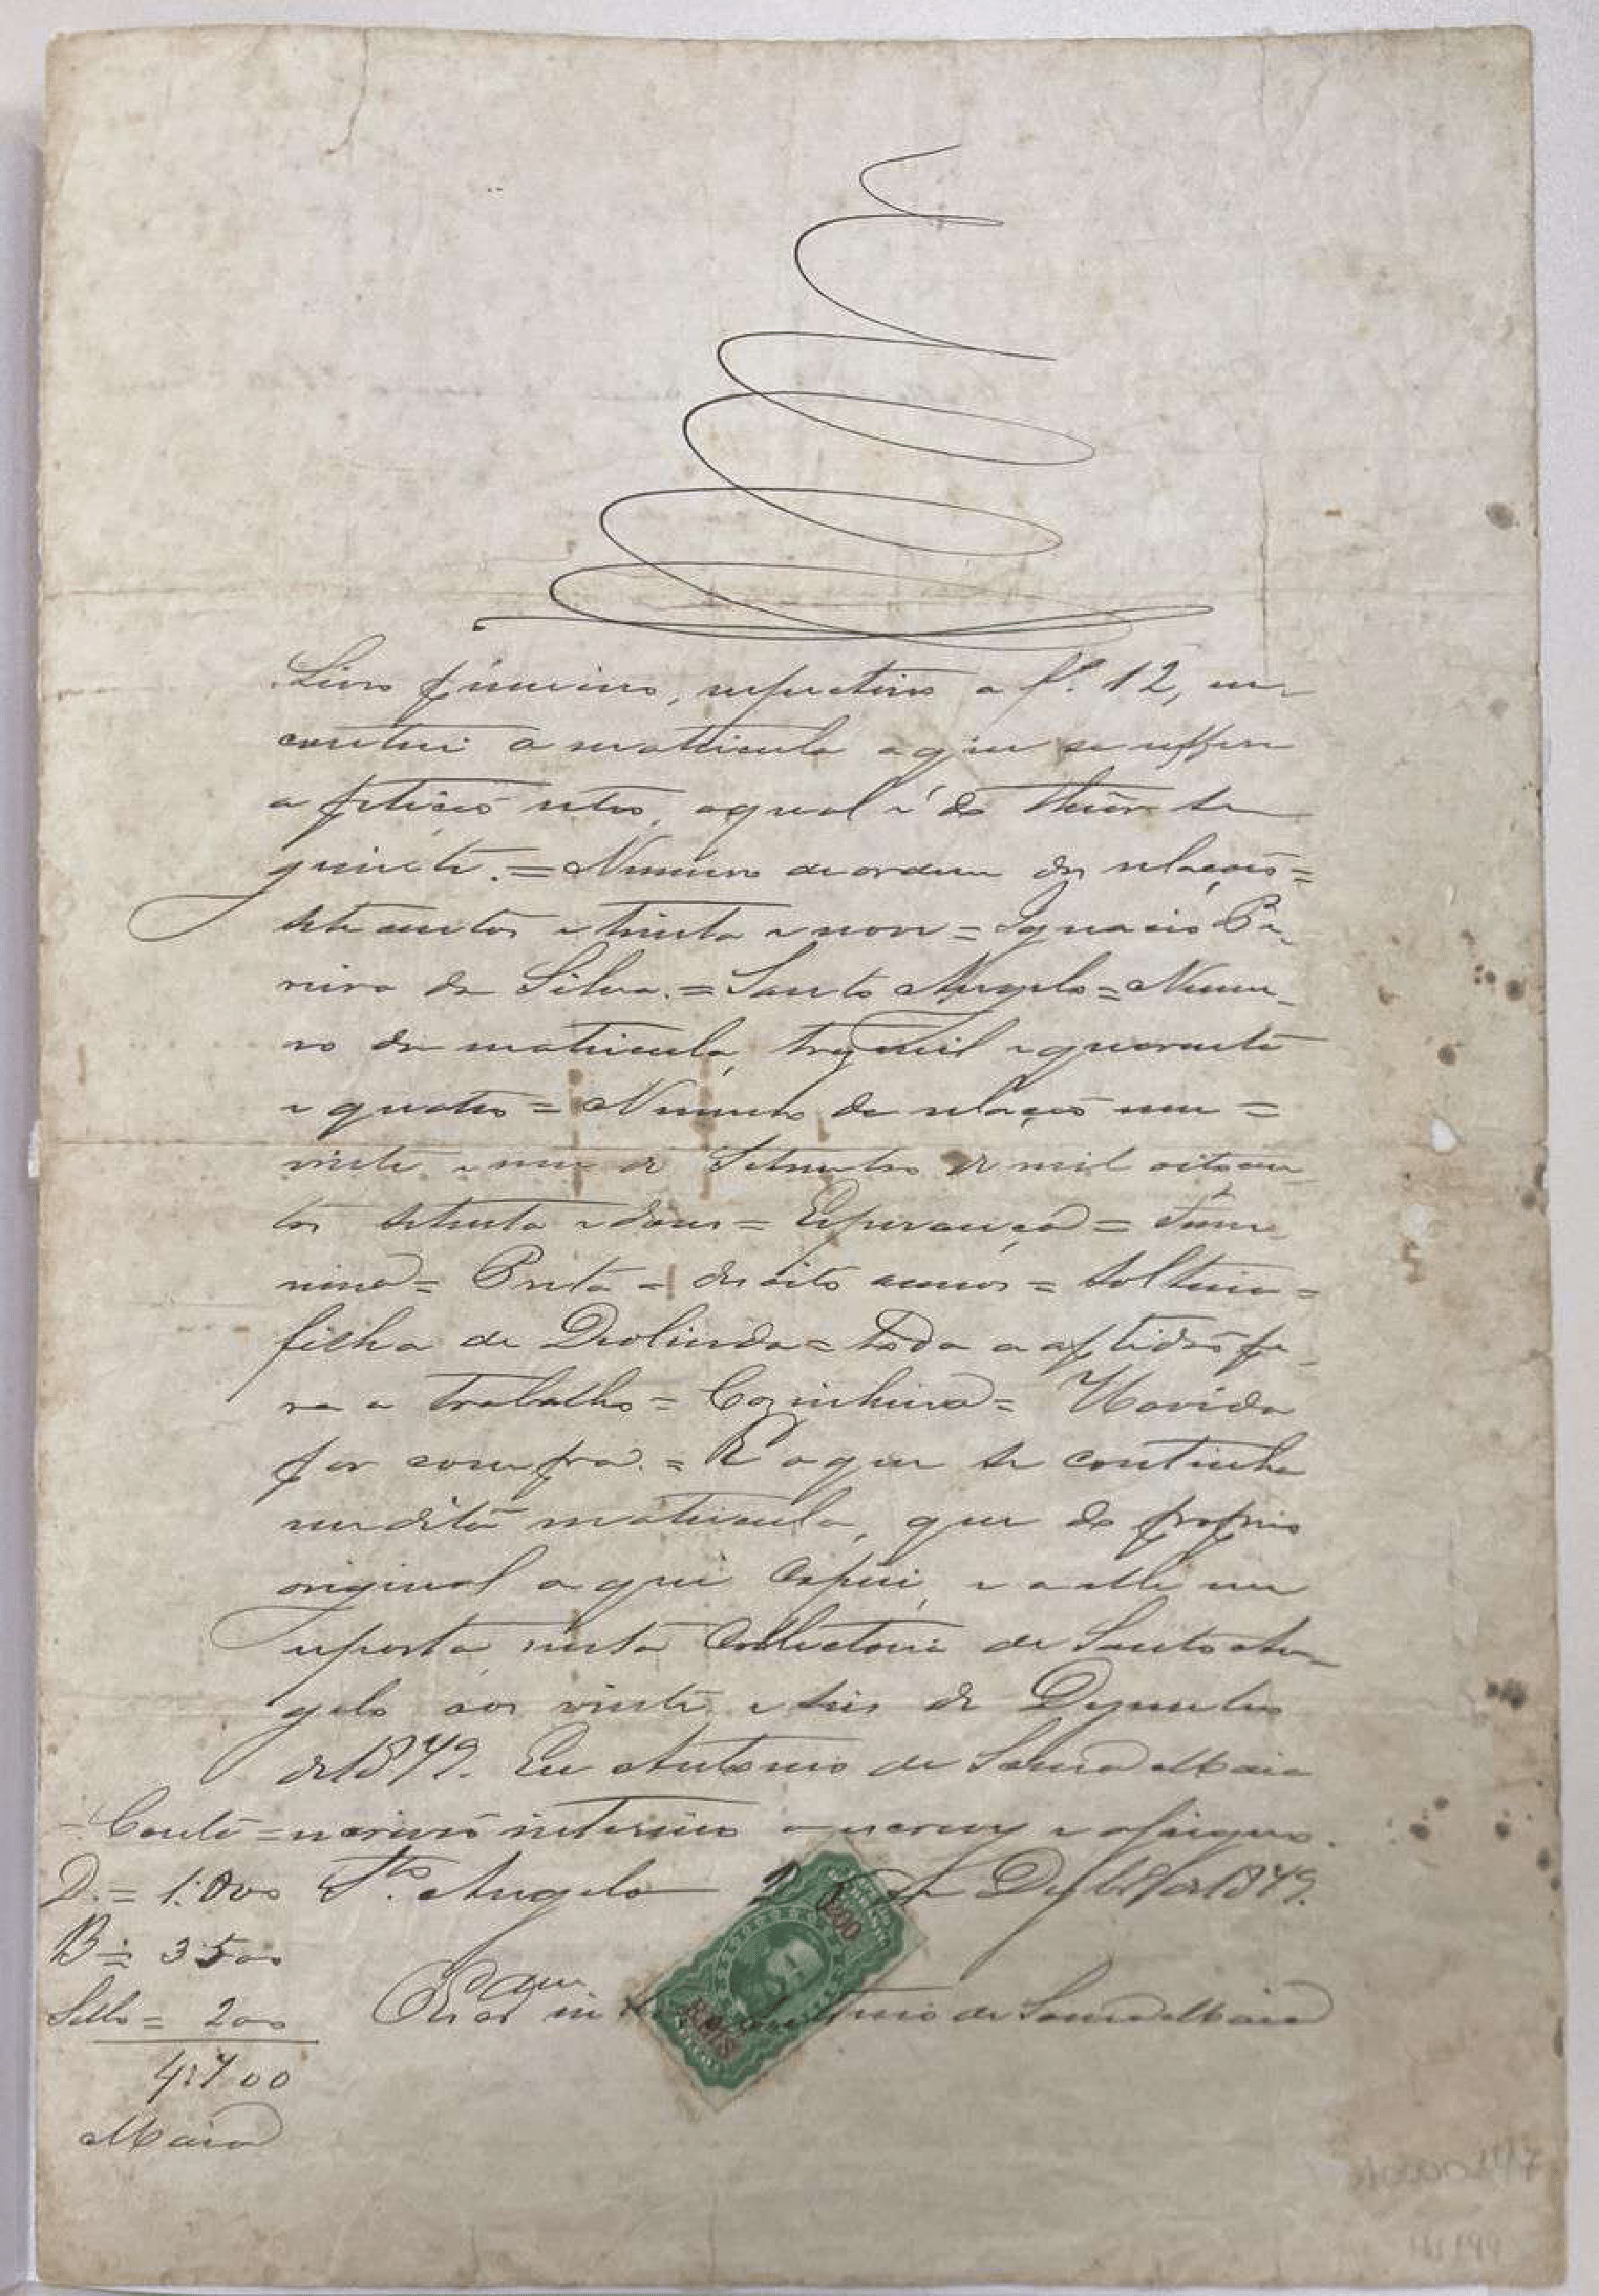 Livro primeiro, respectivo a fl. 12, en-
contrei a matricula a que se reffere
a petição retro, a qual é do theor se
guinte. = Numero de ordem das relações =
sete centos e trinta e nove = Ignacio Pe-
reira da Silva. = Santo Angelo = Nume-
ro da matricula, trez mil e quarenta
e quatro = Numero da relação um =
vinte e um de Setembro de mil oitocen-
tos setenta e dous = Esperança = Femi-
nino = Preta = desoito annos = Solteira =
filha de Deolinda = Toda a aptidão pa-
ra o trabalho = Cozinheira = Havida
por compra. = E o que se continha
em dita matricula, que do proprio
original aqui copiei, e a elle me
reporto nesta Collectoria de Santo An-
gelo aos vinte e seis de Dezembro
de 1879. Eu Antonio de Souza Maia
Conta = escrivão interino o escrevy e assigno.
D. = 1:000 Sto. Angelo 2 de Dezbro de 1879.
B = 3500
Sello = 200 Escam in Antonio de Souza Maia
4:700
Maia
REIS